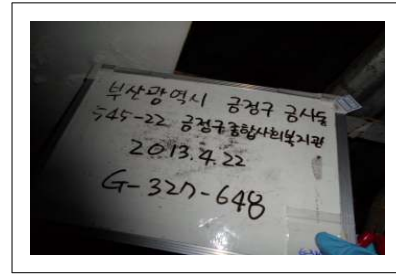 부산광역시 금정구 금사동
545-22 금정구종합사회복지관
2013.4.22
G-327-648